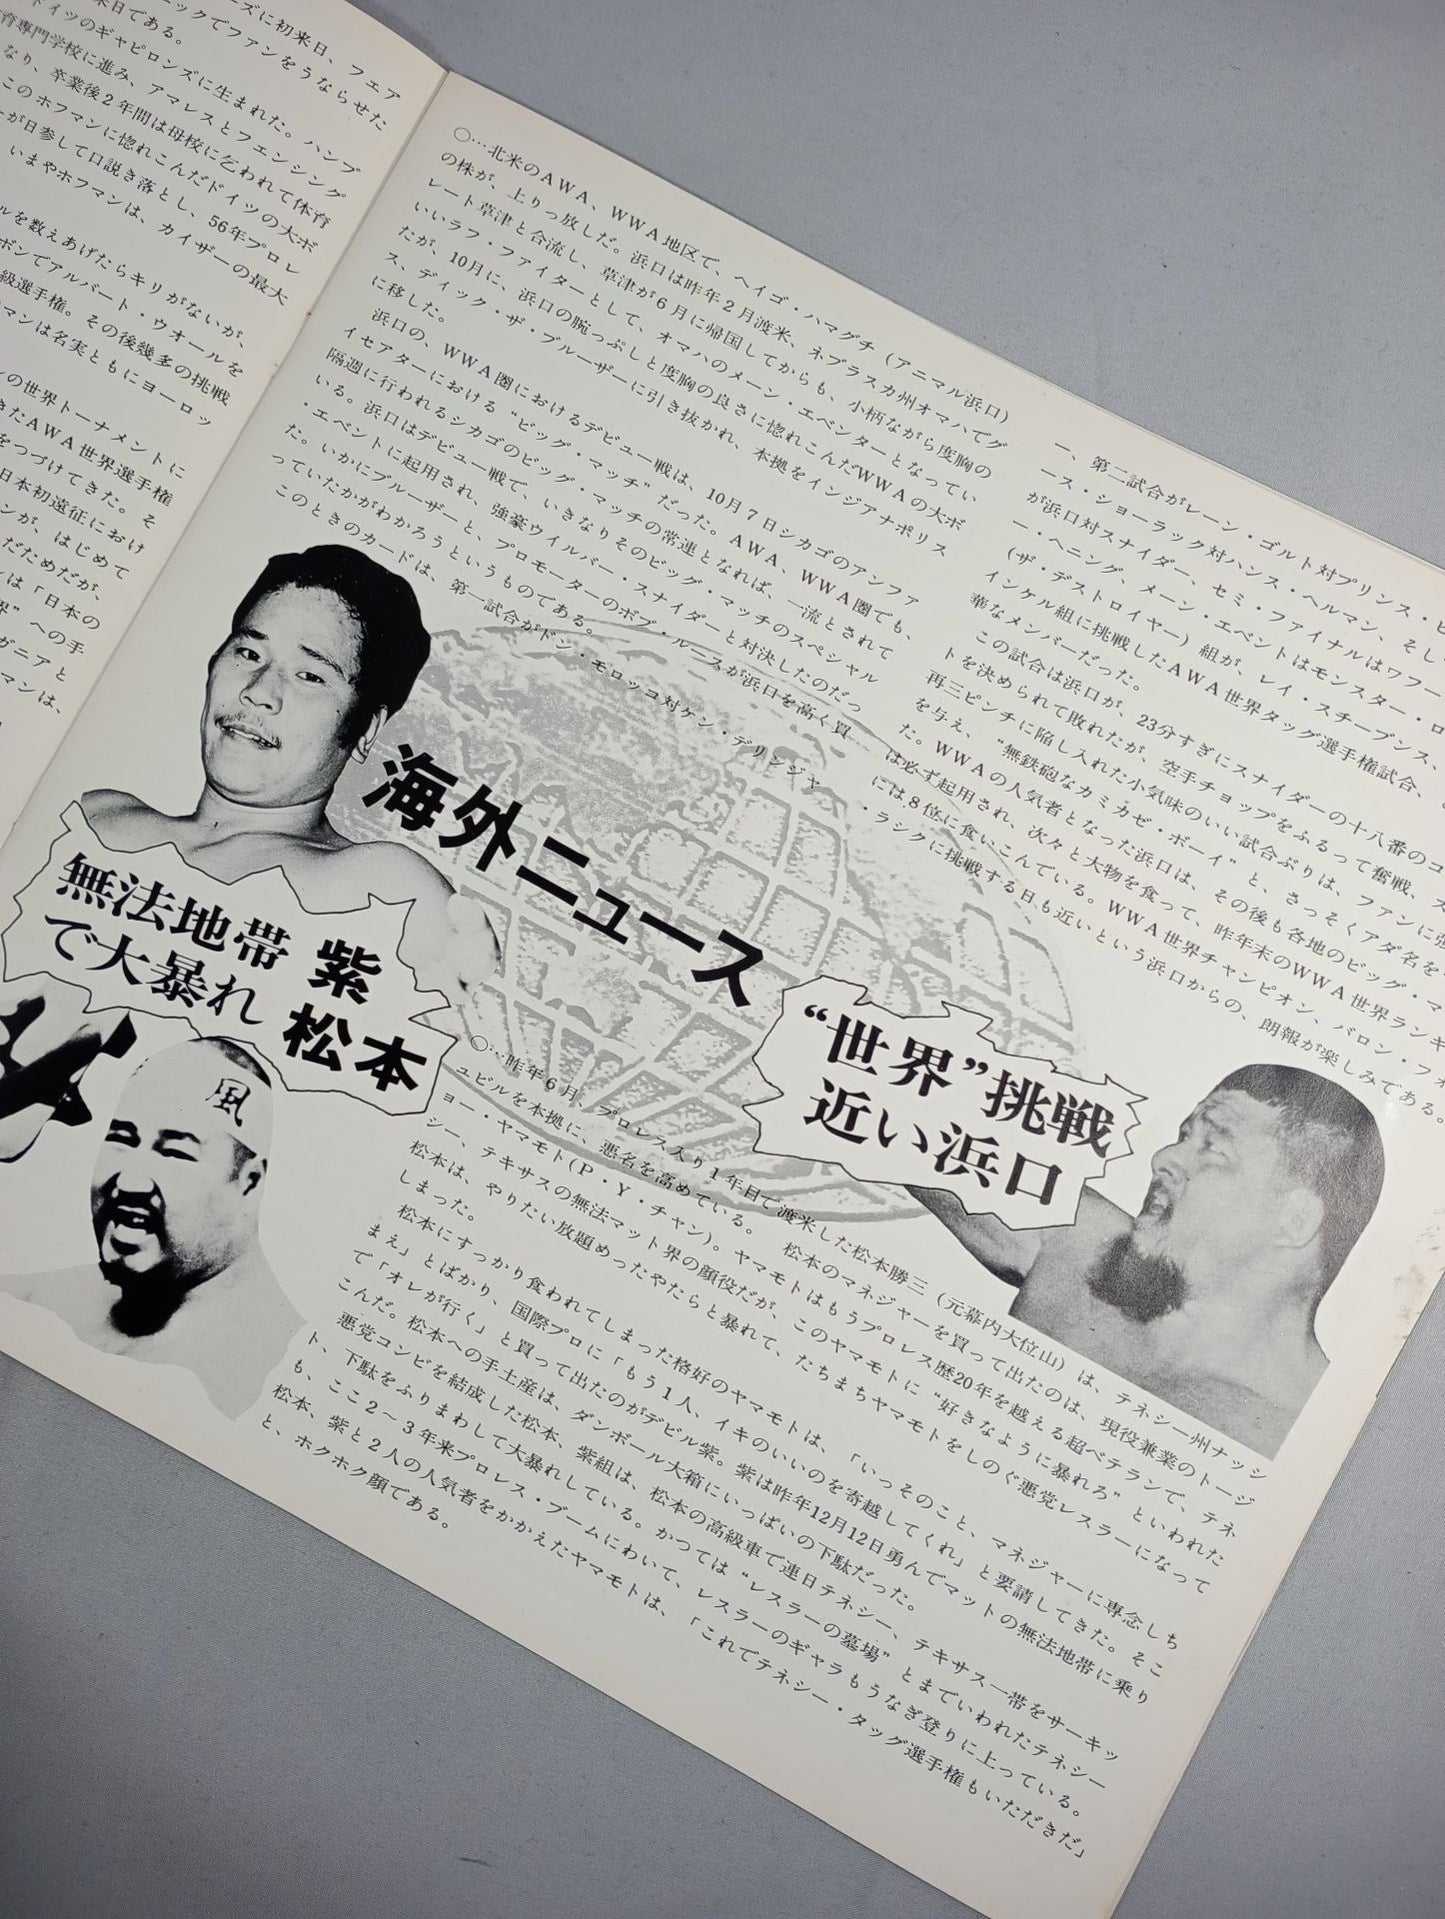 ーズに初来日、フェア
ックでファンをうならせた
来日である。
ドイツのギャピロンズに生まれた。ハンブ
育専門学校に進み、アマレスとフェンシング
なり、卒業後2年間は母校に乞われて体育
このホフマンに惚れこんだドイツの大ボ
が日参して口説き落とし、56年プロレ
いまやホフマンは、カイザーの最大
ルを数えあげたらキリがないが、
ボンでアルバート・ウオールを
級選手権。その後幾多の挑戦
マンは名実ともにヨーロッ
ンの世界トーナメントに
きたAWA世界選手権
をつづけてきた。そ
日本初遠征におけ
ンが、はじめて
だためだが、
ンは「日本の
界”への手
ガニアと
マンは、
○…北米のAWA、WWA地区で、ヘイゴ・ハマグチ（アニマル浜口）
の株が、上りっ放しだ。浜口は昨年2月渡米、ネブラスカ州オマハでグ
レート草津と合流し、草津が6月に帰国してからも、小柄ながら度胸の
いいラフ・ファイターとして、オマハのメーン・エベンターとなってい
たが、10月に、浜口の腕っぷしと度胸の良さに惚れこんだWWAの大ボ
ス、ディック・ザ・ブルーザーに引き抜かれ、本拠をインジアナポリス
に移した。
浜口の、WWA圏におけるデビュー戦は、10月7日シカゴのアンファ
イセアターにおける“ビッグ・マッチ”だった。AWA、WWA圏でも、
隔週に行われるシカゴのビッグ・マッチの常連となれば、一流とされて
いる。浜口はデビュー戦で、いきなりそのビッグ・マッチのスペシャル
・エベントに起用され、強豪ウイルバー・スナイダーと対決したのだっ
た。いかにブルーザーと、プロモーターのボブ・ルースが浜口を高く買
っていたかがわかろうというものである。
このときのカードは、第一試合がドン・モロッコ対ケン・デリンジャ
一、第二試合がレーン・ゴルト対プリンス・ピ
ース・ショーラック対ハンス・ヘルマン、そし
が浜口対スナイダー、セミ・ファイナルはワフー
ー・ヘニング、メーン・エベントはモンスター・ロ
（ザ・デストロイヤー）組が、レイ・スチーブンス、
インケル組に挑戦したAWA世界タッグ選手権試合、
華なメンバーだった。
この試合は浜口が、23分すぎにスナイダーの十八番のコ
トを決められて敗れたが、空手チョップをふるって奮戦、ス
再三ピンチに陥し入れた小気味のいい試合ぶりは、ファンに強
を与え、“無鉄砲なカミカゼ・ボーイ”と、さっそくアダ名を
た。WWAの人気者となった浜口は、その後も各地のビッグ・マ
は必ず起用され、次々と大物を食って、昨年末のWWA世界ランキ
には8位に食いこんでいる。WWA世界チャンピオン、バロン・フォ
・ラシクに挑戦する日も近いという浜口からの、朗報が楽しみである。
海外ニュース
無法地帯
で大暴れ
紫
松本
風
“世界”挑戦
近い浜口
○…昨年6月、プロレス入り1年目で渡米した松本勝三（元幕内大位山）は、テネシー州ナッシ
ュビルを本拠に、悪名を高めている。 松本のマネジャーを買って出たのは、現役兼業のトージ
ョー・ヤマモト（P・Y・チャン）。ヤマモトはもうプロレス歴20年を越える超ベテランで、テネ
シー、テキサスの無法マット界の顔役だが、このヤマモトに“好きなように暴れろ”といわれた
松本は、やりたい放題めったやたらと暴れて、たちまちヤマモトをしのぐ悪党レスラーになって
しまった。
松本にすっかり食われてしまった格好のヤマモトは、「いっそのこと、マネジャーに専念しち
まえ」とばかり、国際プロに「もう1人、イキのいいのを寄越してくれ」と要請してきた。そこ
で「オレが行く」と買って出たのがデビル紫。紫は昨年12月12日勇んでマットの無法地帯に乗り
こんだ。松本への手土産は、ダンボール大箱にいっぱいの下駄だった。
悪党コンビを結成した松本、紫組は、松本の高級車で連日テネシー、テキサス一帯をサーキッ
ト、下駄をふりまわして大暴れしている。かつては“レスラーの墓場”とまでいわれたテネシー
も、ここ2～3年来プロレス・ブームにわいて、レスラーのギャラもうなぎ登りに上っている。
松本、紫と2人の人気者をかかえたヤマモトは、「これでテネシー・タッグ選手権もいただきだ」
と、ホクホク顔である。